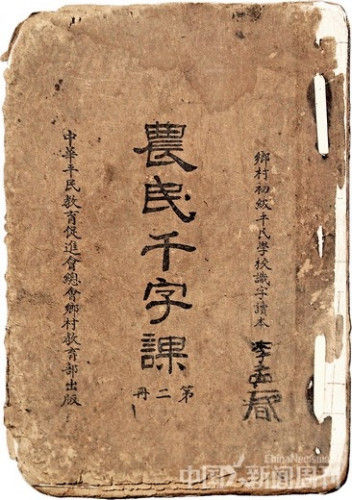 鄉村初級平民學校識字讀本
李
農民千字課
第二冊
中華平民教育促進會總會鄉村教育部出版
中国新闻周刊